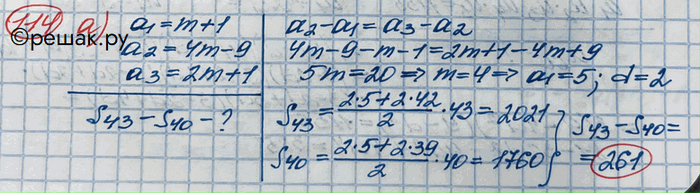 114 a) a₁ = m+1
a₂ = 4m-9
a₃ = 2m+1
S₄₃ - S₄₀ - ?
a₂-a₁ = a₃-a₂
4m-9-m-1 = 2m+1-4m+9
5m = 20 => m=4 => a₁=5; d=2
S₄₃ = (2·5+2·42)/2 · 43 = 2021
S₄₀ = (2·5+2·39)/2 · 40 = 1760
} S₄₃-S₄₀ =
= 261
©решак.ру